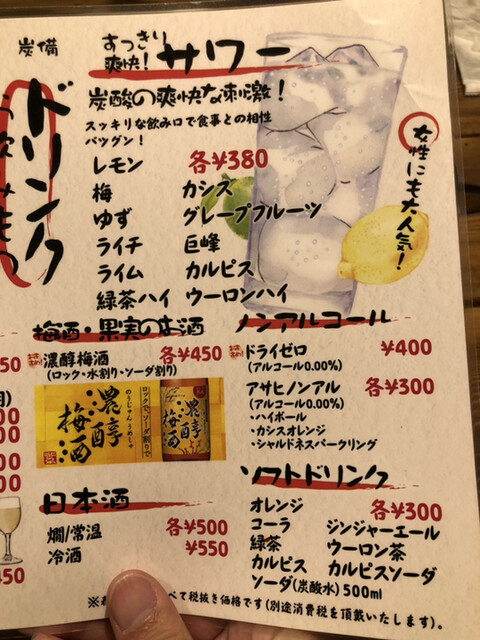 炭備
ドリンク
すっきり
爽快！
サワー
炭酸の爽快な刺激！
スッキリな飲み口で食事との相性
バツグン！
女性にも大人気！
レモン 各¥380
梅 カシス
ゆず グレープフルーツ
ライチ 巨峰
ライム カルピス
緑茶ハイ ウーロンハイ
梅酒・果実のお酒
濃醇梅酒 各¥450
(ロック・水割り・ソーダ割り)
ロックで、ソーダ割りで
濃醇梅酒
のうじゅん うめしゅ
濃醇
梅酒
日本酒
燗/常温 各¥500
冷酒 ¥550
ノンアルコール
ドライゼロ ¥400
(アルコール0.00%)
アサヒノンアル 各¥300
(アルコール0.00%)
・ハイボール
・カシスオレンジ
・シャルドネスパークリング
ソフトドリンク
オレンジ 各¥300
コーラ ジンジャーエール
緑茶 ウーロン茶
カルピス カルピスソーダ
ソーダ(炭酸水)500ml
べて税抜き価格です(別途消費税を頂戴いたします)。